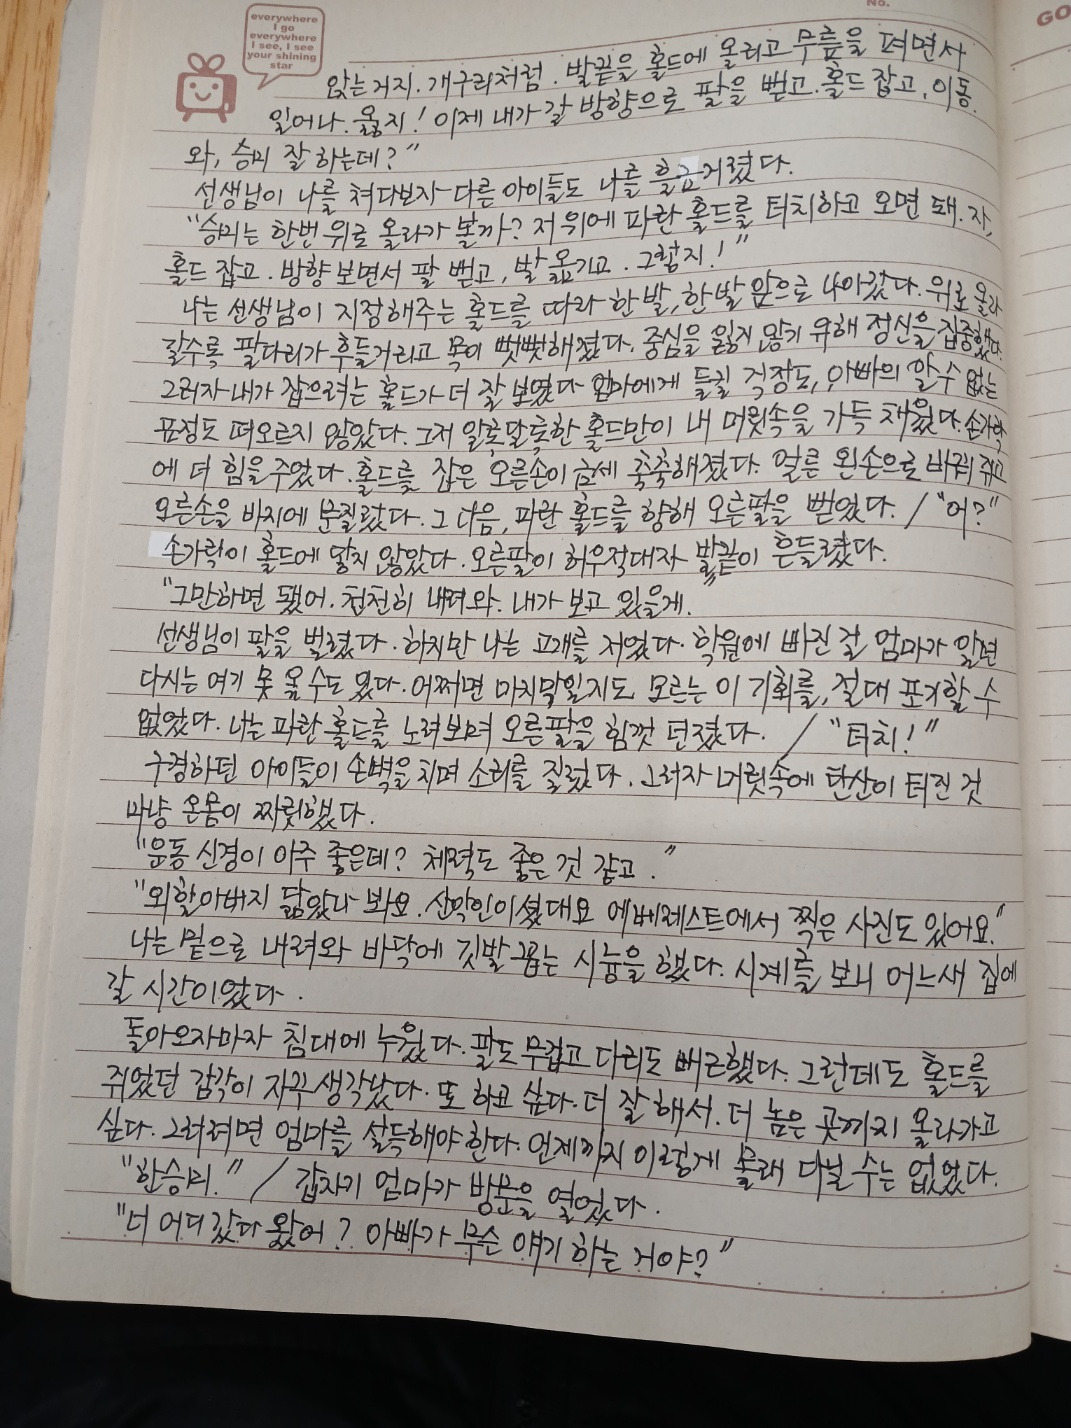 No.
GO
everywhere
I go
everywhere
I see, I see
your shining
star
앉는거지. 개구리처럼. 발끝을 홀드에 올리고 무릎을 펴면서
일어나. 옳지! 이제 내가 갈 방향으로 팔을 뻗고. 홀드 잡고, 이동.
와, 승미 잘 하는데?"
선생님이 나를 쳐다보자 다른 아이들도 나를 흘금거렸다.
"승미는 한번 위로 올라가 볼까? 저 위에 파란 홀드를 터치하고 오면 돼. 자,
홀드 잡고. 방향 보면서 팔 뻗고, 발 옮기고. 그렇지!"
나는 선생님이 지정해주는 홀드를 따라 한발, 한발 앞으로 나아갔다. 위로 올라
갈수록 팔다리가 후들거리고 목이 뻣뻣해졌다. 중심을 잃지 않기 위해 정신을 집중했다.
그러자 내가 잡으려는 홀드가 더 잘 보였다 엄마에게 들킬 걱정도, 아빠의 알 수 없는
표정도 떠오르지 않았다. 그저 알록달록한 홀드만이 내 머릿속을 가득 채웠다. 손가락
에 더 힘을 주었다. 홀드를 잡은 오른손이 금세 축축해졌다. 얼른 왼손으로 바꿔 쥐고
오른손을 바지에 문질렀다. 그 다음, 파란 홀드를 향해 오른팔을 뻗었다. / "어?"
손가락이 홀드에 닿지 않았다. 오른팔이 허우적대자 발끝이 흔들렸다.
"그만하면 됐어. 천천히 내려와. 내가 보고 있을게."
선생님이 팔을 벌렸다. 하지만 나는 고개를 저었다. 학원에 빠진 걸 엄마가 알면
다시는 여기 못 올 수도 있다. 어쩌면 마지막일지도 모르는 이 기회를, 절대 포기할 수
없었다. 나는 파란 홀드를 노려보며 오른팔을 힘껏 던졌다. / "터치!"
구경하던 아이들이 손벽을 치며 소리를 질렀다. 그러자 머릿속에 탄산이 터진 것
마냥 온몸이 짜릿했다.
"운동 신경이 아주 좋은데? 체력도 좋은 것 같고."
"외할아버지 닮았나 봐요. 산악인이셨대요 에베레스트에서 찍은 사진도 있어요."
나는 밑으로 내려와 바닥에 깃발 꼽는 시늉을 했다. 시계를 보니 어느새 집에
갈 시간이었다.
돌아오자마자 침대에 누웠다. 팔도 무겁고 다리도 뻐근했다. 그런데도 홀드를
쥐었던 감각이 자꾸 생각났다. 또 하고 싶다. 더 잘 해서. 더 높은 곳까지 올라가고
싶다. 그러려면 엄마를 설득해야 한다. 언제까지 이렇게 몰래 다닐 수는 없었다.
"한승미." / 갑자기 엄마가 방문을 열었다.
"너 어디 갔다 왔어? 아빠가 무슨 얘기 하는 거야?"